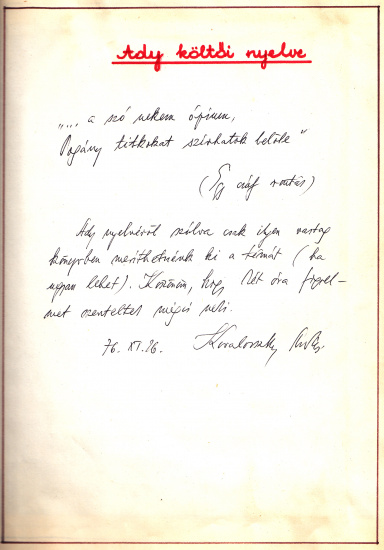 Ady költői nyelve
"... a szó nekem ópium,
Pogány titkokat szívhatok belőle"
(Egy csúf rontás)
Ady nyelvéről szólva csak ilyen vastag
könyvben meríthetnénk ki a témát (ha
ugyan lehet). Köszönöm, hogy két óra figyel-
met szenteltek mégis neki.
76. XI. 26. Kovalovszky